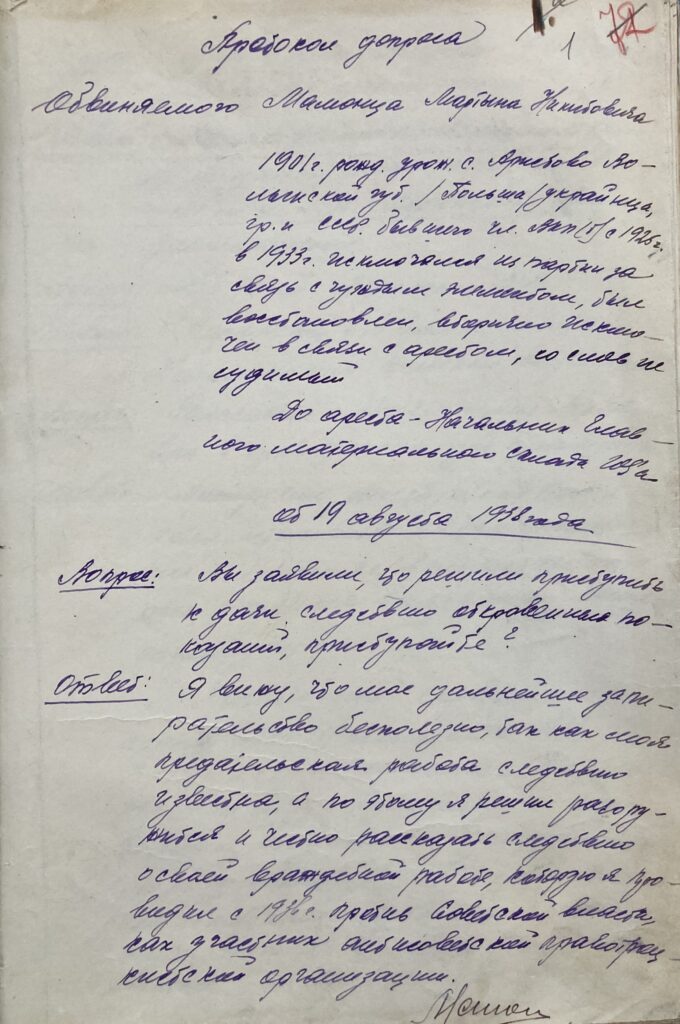 72
1
Протокол допроса
Обвиняемого Мамонца Мартына Никитовича
1901 г. рожд. урож. с. Аршетово Во-
лынской губ. /Польша/ украинца,
гр-н СССР. бывшего чл. ВКП(б) с 1926 г.,
в 1933 г. исключался из партии за
связь с чуждым элементом, был
восстановлен, вторично исклю-
чен в связи с арестом, со слов не
судимый
До ареста - Начальник Глав-
ного материального склада
от 19 августа 1938 года
Вопрос: Вы заявили, что решили приступить
к даче следствию откровенных по-
казаний, приступайте?
Ответ: Я вижу, что мое дальнейшее запи-
рательство бесполезно, так как моя
предательская работа следствию
известна, а по этому я решил разору-
житься и честно рассказать следствию
о своей враждебной работе, которую я про-
водил с против Советской власти,
как участник антисоветской правотроц-
кистской организации.